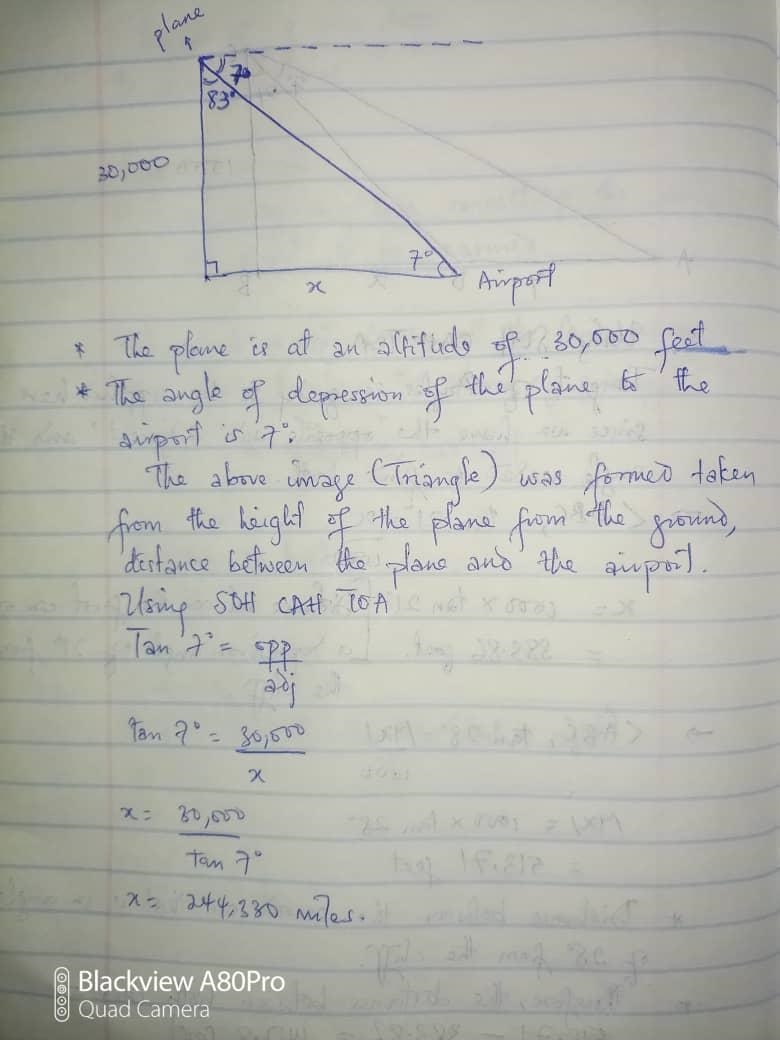 plane
7°
83°
30,000
7°
x
Airport
* The plane is at an altitude of 30,000 feet
* The angle of depression of the plane to the
airport is 7°.
The above image (Triangle) was formed taken
from the height of the plane from the ground,
distance between the plane and the airport.
Using SOH CAH TOA
Tan 7° = opp
adj
tan 7° = 30,000
x
x = 30,000
tan 7°
x = 244,330 miles.
Blackview A80Pro
Quad Camera